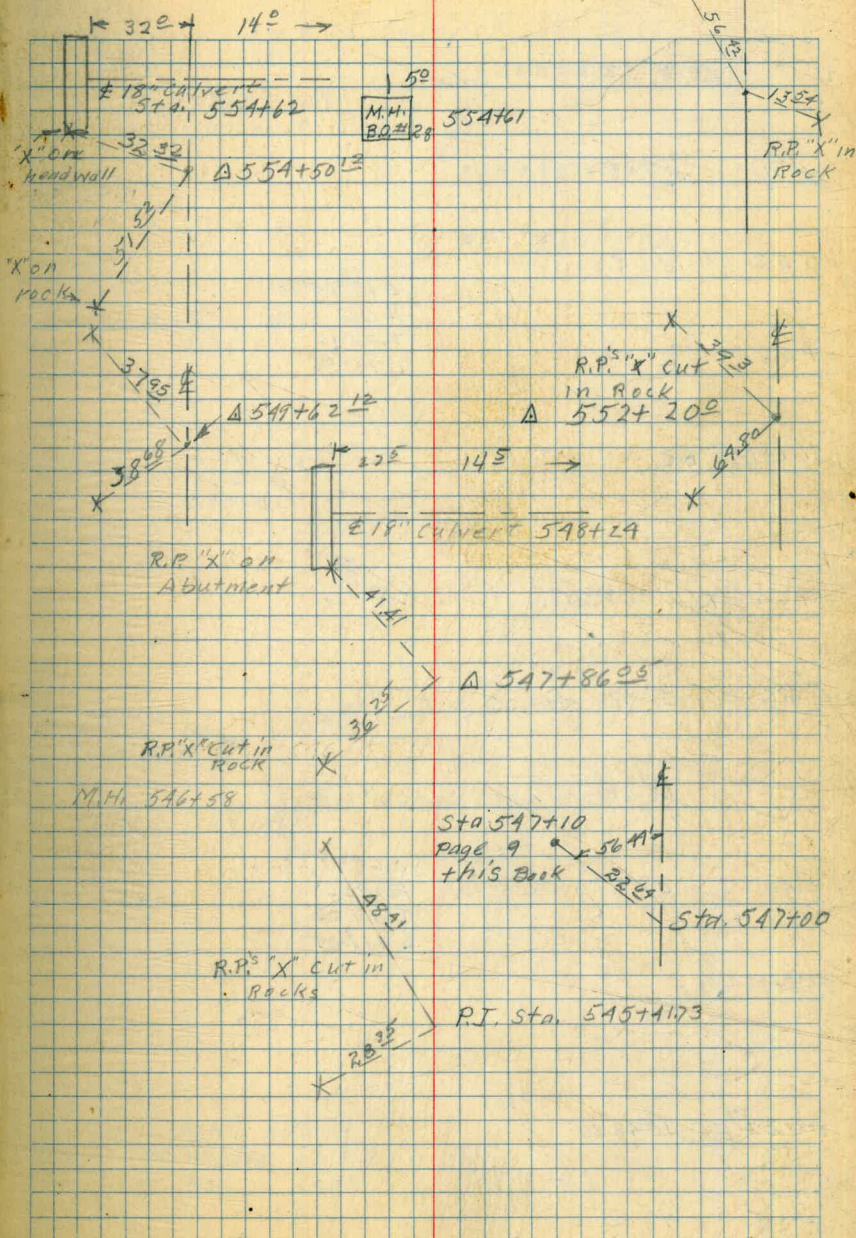 32⁰ 14⁰
56 42
℄ 18" Culvert
Sta. 554+62
5⁰
M.H.
B.O.#28
554+61
13 54
R.P. "X" in
Rock
"X" on
headwall
32 32
△ 554+50 12
"X" on
rock
37 95
℄
△ 549+62 12
38 68
R.P.'s "X" cut
in Rock
△ 552+20⁰
℄
64.80
14 5
℄ 18" Culvert 548+24
R.P. "X" on
Abutment
41.41
△ 547+86 05
36 75
R.P. "X" Cut in
Rock
M.H. 546+58
℄
Sta 547+10
Page 9
this Book
22 64
Sta. 547+00
48 41
R.P.'s "X" cut in
Rocks
P.I. Sta. 545+41.73
28 95